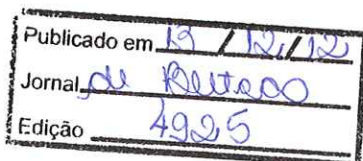 Publicado em 19 / 12 / 12
Jornal de Beltrão
Edição 4925